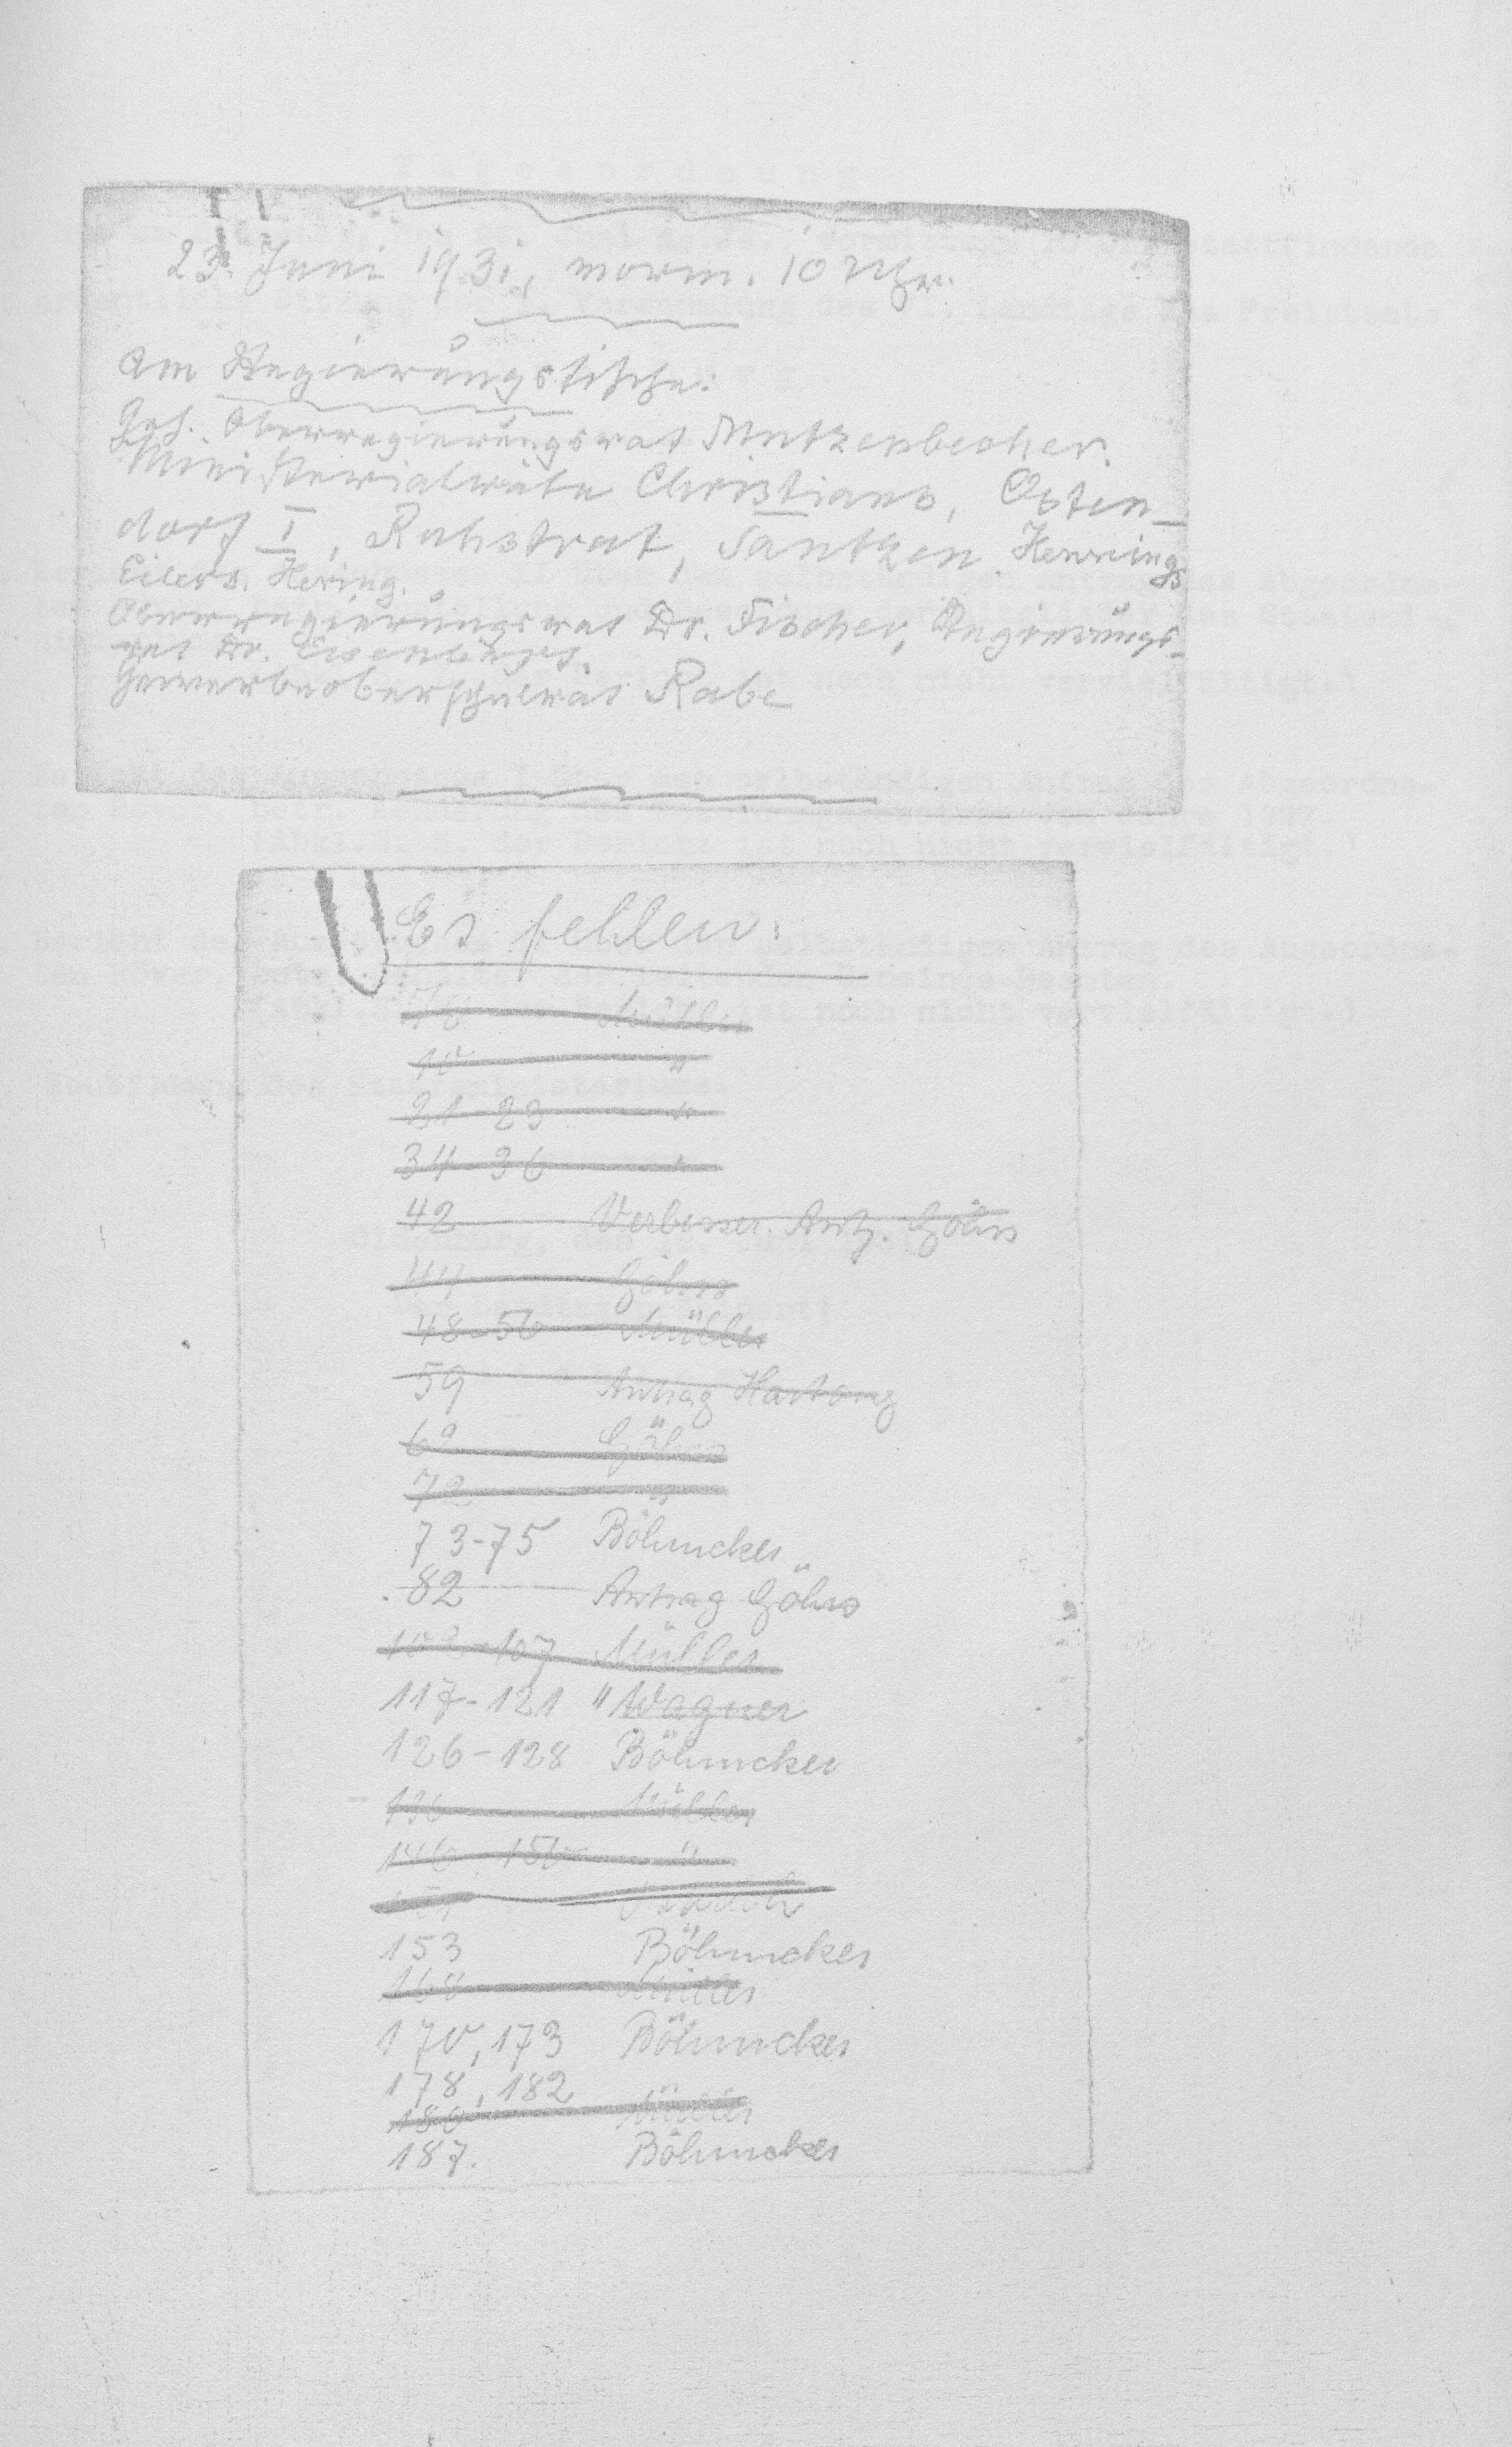 23. Juni 1931, vorm. 10 Uhr.
Am Regierungstische:
Geh. Oberregierungsrat Mutzenbecher.
Ministerialräte Christians, Osten-
dorf I, Ruhstrat, Tantzen, Henrings
Eilers. Hering.
Oberregierungsrat Dr. Fischer, Regierungs-
rat Dr.
Gewerbeoberschulrat Rabe
Es fehlen:
Müller
10 "
21-23 "
34-36 "
42 Verbesser. Antr. Göhrs
44 Göhrs
48-50 Müller
59 Antrag Hartong
69 Göhrs
72 "
73-75 Böhmcker
82 Antrag Göhrs
107 Müller
117-121 " Wagner
126-128 Böhmcker
136 Müller
146 150 "
153 Böhmcker
168 Müller
170, 173 Böhmcker
178, 182
180 Müller
187. Böhmcker